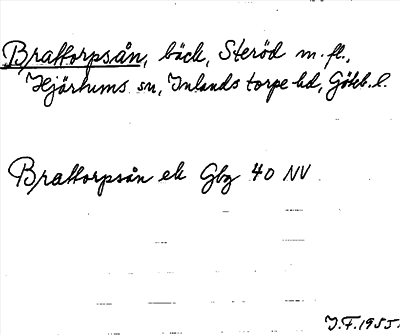 Brattorpsån, bäck, Steröd m. fl.,
Hjärtums sn, Inlands torpe hd, Göteb. l.
Brattorpsån ek Gbg 40 NV
J.F. 1955.